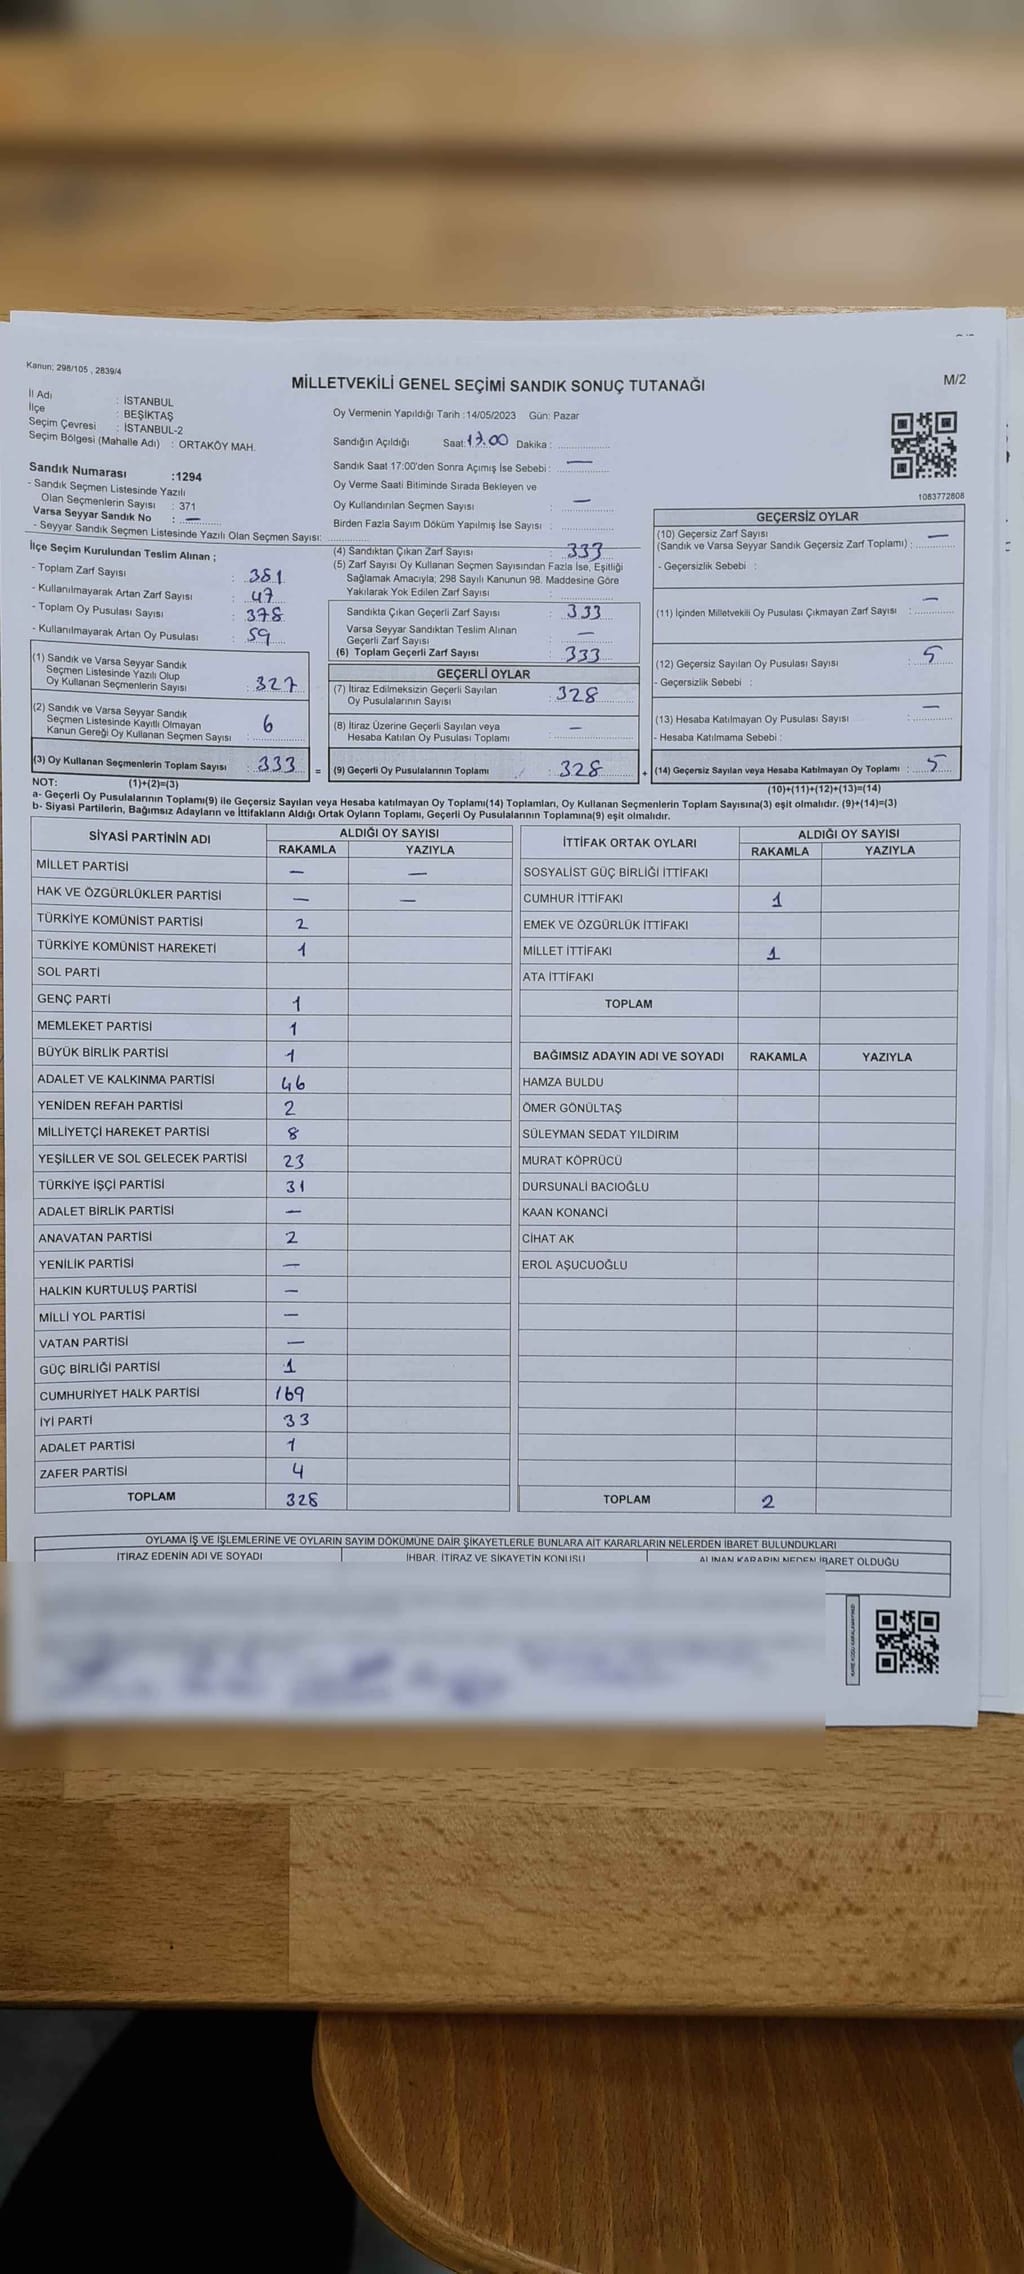 Kanun; 298/105 , 2839/4
MİLLETVEKİLİ GENEL SEÇİMİ SANDIK SONUÇ TUTANAĞI
M/2
İl Adı : İSTANBUL
İlçe : BEŞİKTAŞ
Seçim Çevresi : İSTANBUL-2
Seçim Bölgesi (Mahalle Adı) : ORTAKÖY MAH.
Sandık Numarası :1294
- Sandık Seçmen Listesinde Yazılı
Olan Seçmenlerin Sayısı : 371
Varsa Seyyar Sandık No : —
- Seyyar Sandık Seçmen Listesinde Yazılı Olan Seçmen Sayısı:
Oy Vermenin Yapıldığı Tarih :14/05/2023 Gün: Pazar
Sandığın Açıldığı Saat:17.00 Dakika :
Sandık Saat 17:00'den Sonra Açımış İse Sebebi : —
Oy Verme Saati Bitiminde Sırada Bekleyen ve
Oy Kullandırılan Seçmen Sayısı : —
Birden Fazla Sayım Döküm Yapılmış İse Sayısı :
1083772808
İlçe Seçim Kurulundan Teslim Alınan ;
- Toplam Zarf Sayısı : 381
- Kullanılmayarak Artan Zarf Sayısı : 47
- Toplam Oy Pusulası Sayısı : 378
- Kullanılmayarak Artan Oy Pusulası : 59
(1) Sandık ve Varsa Seyyar Sandık
Seçmen Listesinde Yazılı Olup
Oy Kullanan Seçmenlerin Sayısı : 327
(2) Sandık ve Varsa Seyyar Sandık
Seçmen Listesinde Kayıtlı Olmayan
Kanun Gereği Oy Kullanan Seçmen Sayısı : 6
(3) Oy Kullanan Seçmenlerin Toplam Sayısı : 333 =
(4) Sandıktan Çıkan Zarf Sayısı : 333
(5) Zarf Sayısı Oy Kullanan Seçmen Sayısından Fazla İse, Eşitliği
Sağlamak Amacıyla; 298 Sayılı Kanunun 98. Maddesine Göre
Yakılarak Yok Edilen Zarf Sayısı :
Sandıkta Çıkan Geçerli Zarf Sayısı : 333
Varsa Seyyar Sandıktan Teslim Alınan
Geçerli Zarf Sayısı : —
(6) Toplam Geçerli Zarf Sayısı : 333
GEÇERLİ OYLAR
(7) İtiraz Edilmeksizin Geçerli Sayılan
Oy Pusulalarının Sayısı : 328
(8) İtiraz Üzerine Geçerli Sayılan veya
Hesaba Katılan Oy Pusulası Toplamı : —
(9) Geçerli Oy Pusulalarının Toplamı : 328 +
GEÇERSİZ OYLAR
(10) Geçersiz Zarf Sayısı
(Sandık ve Varsa Seyyar Sandık Geçersiz Zarf Toplamı) : —
- Geçersizlik Sebebi :
(11) İçinden Milletvekili Oy Pusulası Çıkmayan Zarf Sayısı : —
(12) Geçersiz Sayılan Oy Pusulası Sayısı : 5
- Geçersizlik Sebebi :
(13) Hesaba Katılmayan Oy Pusulası Sayısı : —
- Hesaba Katılmama Sebebi :
(14) Geçersiz Sayılan veya Hesaba Katılmayan Oy Toplamı : 5
NOT: (1)+(2)=(3)
(10)+(11)+(12)+(13)=(14)
a- Geçerli Oy Pusulalarının Toplamı(9) ile Geçersiz Sayılan veya Hesaba katılmayan Oy Toplamı(14) Toplamları, Oy Kullanan Seçmenlerin Toplam Sayısına(3) eşit olmalıdır. (9)+(14)=(3)
b- Siyasi Partilerin, Bağımsız Adayların ve İttifakların Aldığı Ortak Oyların Toplamı, Geçerli Oy Pusulalarının Toplamına(9) eşit olmalıdır.
SİYASİ PARTİNİN ADI ALDIĞI OY SAYISI
RAKAMLA YAZIYLA
MİLLET PARTİSİ — —
HAK VE ÖZGÜRLÜKLER PARTİSİ — —
TÜRKİYE KOMÜNİST PARTİSİ 2
TÜRKİYE KOMÜNİST HAREKETİ 1
SOL PARTİ
GENÇ PARTİ 1
MEMLEKET PARTİSİ 1
BÜYÜK BİRLİK PARTİSİ 1
ADALET VE KALKINMA PARTİSİ 46
YENİDEN REFAH PARTİSİ 2
MİLLİYETÇİ HAREKET PARTİSİ 8
YEŞİLLER VE SOL GELECEK PARTİSİ 23
TÜRKİYE İŞÇİ PARTİSİ 31
ADALET BİRLİK PARTİSİ —
ANAVATAN PARTİSİ 2
YENİLİK PARTİSİ —
HALKIN KURTULUŞ PARTİSİ —
MİLLİ YOL PARTİSİ —
VATAN PARTİSİ —
GÜÇ BİRLİĞİ PARTİSİ 1
CUMHURİYET HALK PARTİSİ 169
İYİ PARTİ 33
ADALET PARTİSİ 1
ZAFER PARTİSİ 4
TOPLAM 328
İTTİFAK ORTAK OYLARI ALDIĞI OY SAYISI
RAKAMLA YAZIYLA
SOSYALİST GÜÇ BİRLİĞİ İTTİFAKI
CUMHUR İTTİFAKI 1
EMEK VE ÖZGÜRLÜK İTTİFAKI
MİLLET İTTİFAKI 1
ATA İTTİFAKI
TOPLAM
BAĞIMSIZ ADAYIN ADI VE SOYADI RAKAMLA YAZIYLA
HAMZA BULDU
ÖMER GÖNÜLTAŞ
SÜLEYMAN SEDAT YILDIRIM
MURAT KÖPRÜCÜ
DURSUNALİ BACIOĞLU
KAAN KONANCİ
CİHAT AK
EROL AŞUCUOĞLU
TOPLAM 2
OYLAMA İŞ VE İŞLEMLERİNE VE OYLARIN SAYIM DÖKÜMÜNE DAİR ŞİKAYETLERLE BUNLARA AİT KARARLARIN NELERDEN İBARET BULUNDUKLARI
İTİRAZ EDENİN ADI VE SOYADI İHBAR, İTİRAZ VE ŞİKAYETİN KONUSU ALINAN KARARIN NEDEN İBARET OLDUĞU